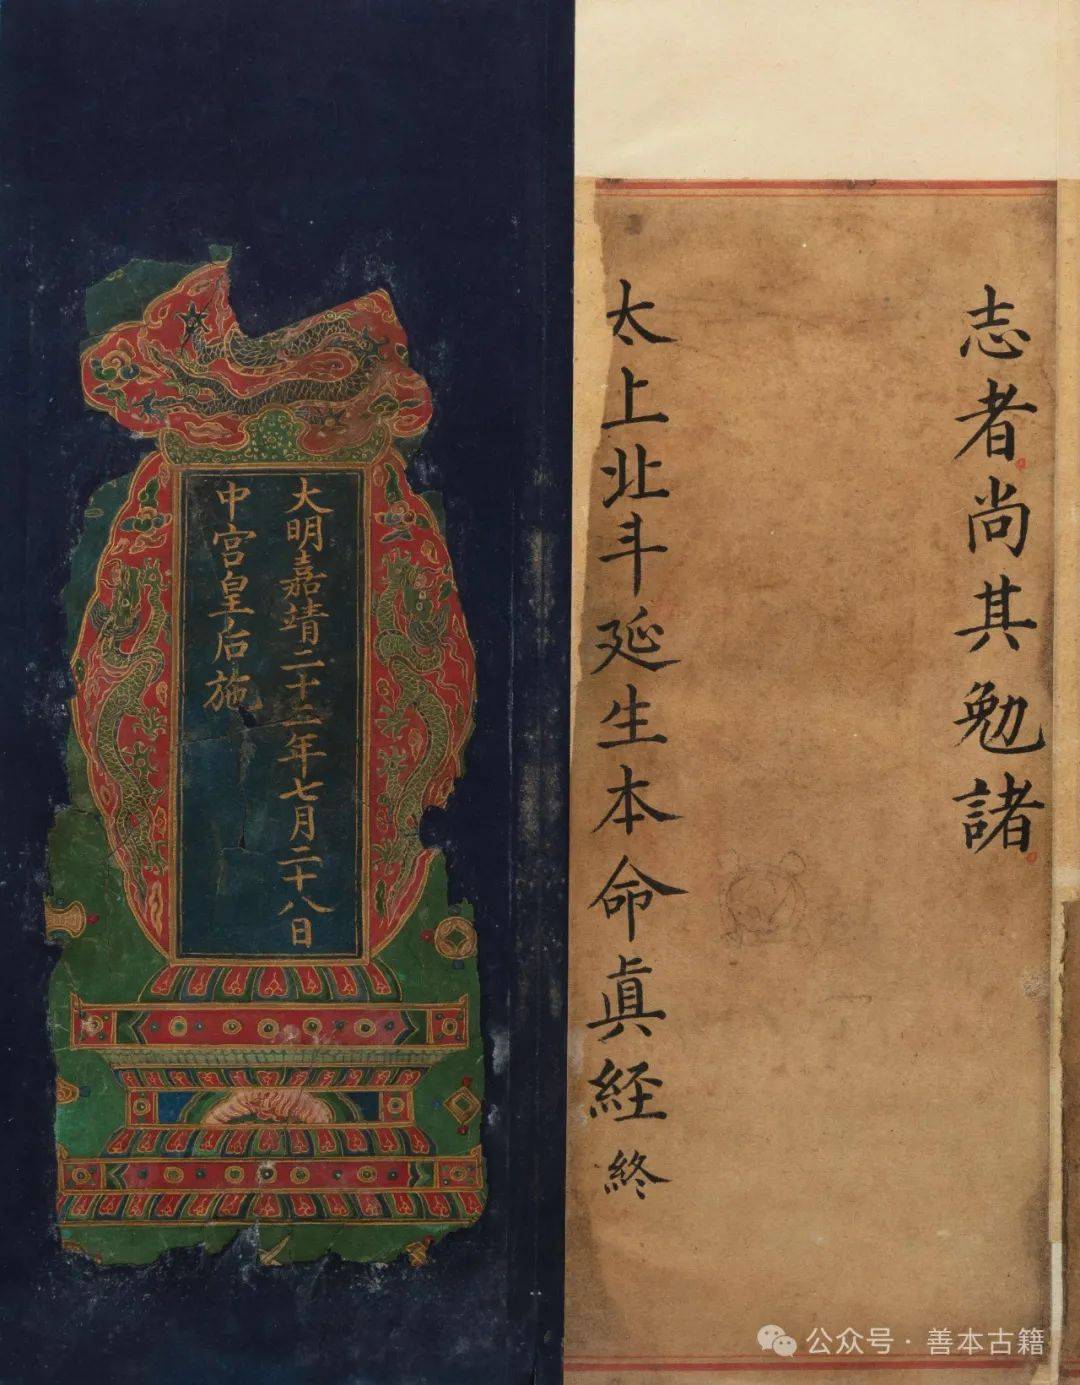 志者尚其勉諸
太上北斗延生本命眞經終
大明嘉靖二十二年七月二十八日
中宮皇后施
公众号·善本古籍